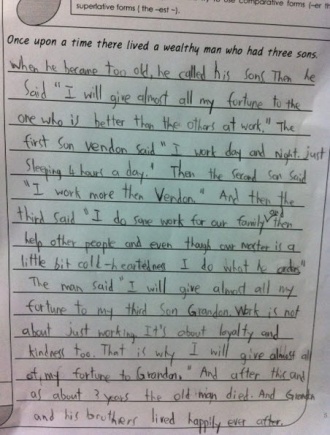 comparative forms (-er th
superlative forms ( the -est ~).
Once upon a time there lived a wealthy man who had three sons.
When he became too old, he called his sons Then he
said " I will give almost all my fortune to the
one who is better than the others at work." The
first son Vendon said " I work day and night. just
Sleeping 4 hours a day." Then the second son said
"I work more then Vendon." And then the
third said " I do some work for our family then
help other people and even though our master is a
little bit cold-heartedness I do what he orders"
The man said " I will give almost all my
fortune to my third Son Grandon. Work is not
about just working It's about loyalty and
kindness too. That is why I will give almost all
of my fortune to Grandon." And after this and
as about 2 years the old man died. And Grandon
and his brothers lived happily ever after.